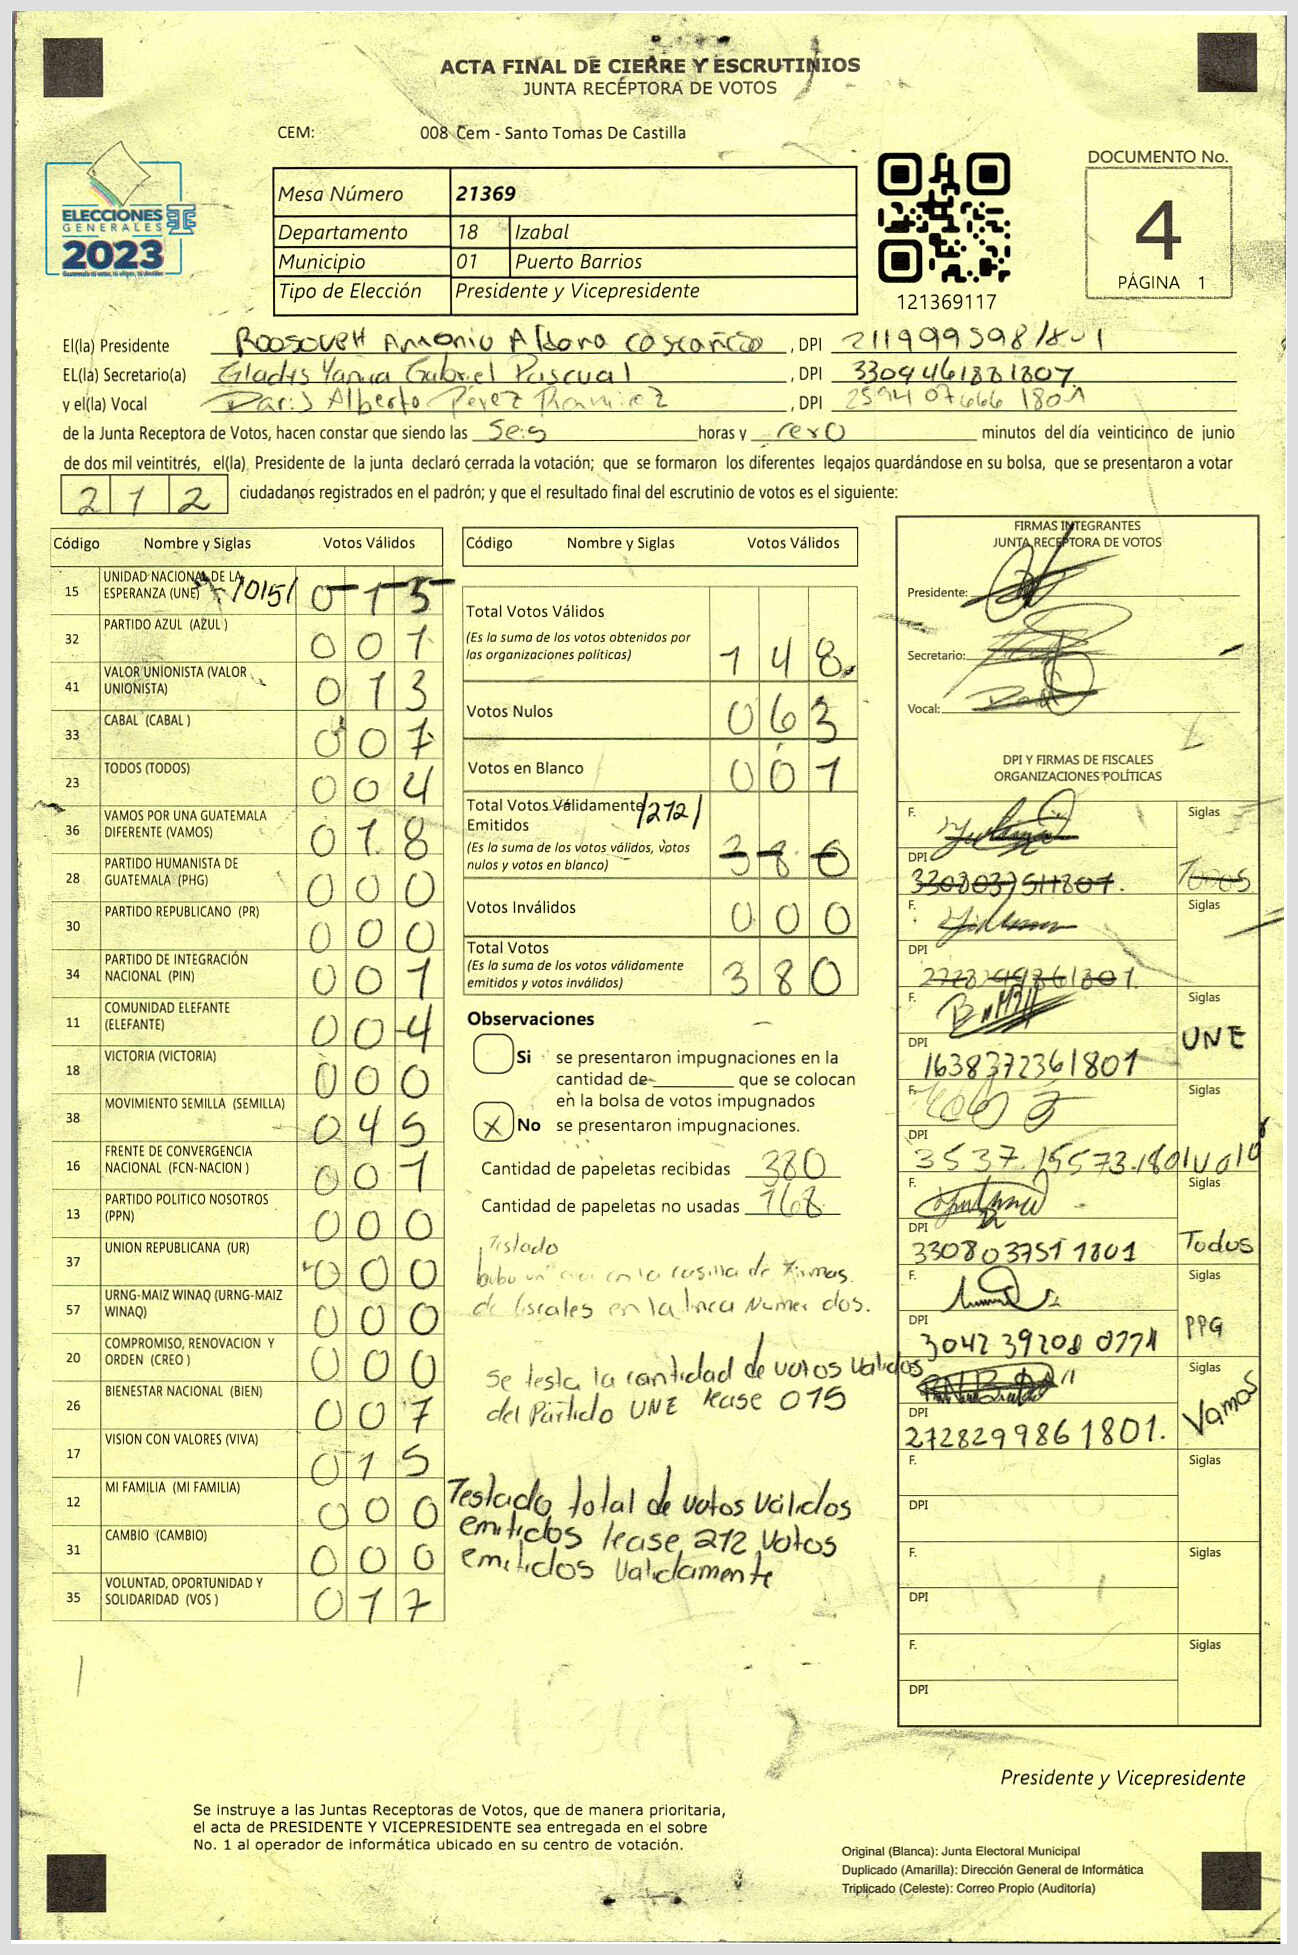 ACTA FINAL DE CIERRE Y ESCRUTINIOS
JUNTA RECEPTORA DE VOTOS
CEM: 008 Cem - Santo Tomas De Castilla
ELECCIONES
GENERALES
2023
Mesa Número 21369
Departamento 18 Izabal
Municipio 01 Puerto Barrios
Tipo de Elección Presidente y Vicepresidente
121369117
DOCUMENTO No.
4
PÁGINA 1
El(la) Presidente Antonio Aldana , DPI
EL(la) Secretario(a) Gladis Gabriel Pascual , DPI 3309461881807
y el(la) Vocal Alberto Pérez Ramirez , DPI
de la Junta Receptora de Votos, hacen constar que siendo las Seis horas y cero minutos del día veinticinco de junio
de dos mil veintitrés, el(la). Presidente de la junta declaró cerrada la votación; que se formaron los diferentes legajos guardándose en su bolsa, que se presentaron a votar
212 ciudadanos registrados en el padrón; y que el resultado final del escrutinio de votos es el siguiente:
Código Nombre y Siglas Votos Válidos
15 UNIDAD NACIONAL DE LA ESPERANZA (UNE) /015/ 0 1 5
32 PARTIDO AZUL (AZUL ) 0 0 1
41 VALOR UNIONISTA (VALOR UNIONISTA) 0 1 3
33 CABAL (CABAL ) 0 0 7
23 TODOS (TODOS) 0 0 4
36 VAMOS POR UNA GUATEMALA DIFERENTE (VAMOS) 0 1 8
28 PARTIDO HUMANISTA DE GUATEMALA (PHG) 0 0 0
30 PARTIDO REPUBLICANO (PR) 0 0 0
34 PARTIDO DE INTEGRACIÓN NACIONAL (PIN) 0 0 1
11 COMUNIDAD ELEFANTE (ELEFANTE) 0 0 4
18 VICTORIA (VICTORIA) 0 0 0
38 MOVIMIENTO SEMILLA (SEMILLA) 0 4 5
16 FRENTE DE CONVERGENCIA NACIONAL (FCN-NACION ) 0 0 1
13 PARTIDO POLITICO NOSOTROS (PPN) 0 0 0
37 UNION REPUBLICANA (UR) 0 0 0
57 URNG-MAIZ WINAQ (URNG-MAIZ WINAQ) 0 0 0
20 COMPROMISO, RENOVACION Y ORDEN (CREO ) 0 0 0
26 BIENESTAR NACIONAL (BIEN) 0 0 7
17 VISION CON VALORES (VIVA) 0 1 5
12 MI FAMILIA (MI FAMILIA) 0 0 0
31 CAMBIO (CAMBIO) 0 0 0
35 VOLUNTAD, OPORTUNIDAD Y SOLIDARIDAD (VOS ) 0 1 7
Código Nombre y Siglas Votos Válidos
Total Votos Válidos 1 4 8
(Es la suma de los votos obtenidos por
las organizaciones politicas)
Votos Nulos 0 6 3
Votos en Blanco 0 0 1
Total Votos Válidamente /212/
Emitidos
(Es la suma de los votos válidos, votos
nulos y votos en blanco) 3 8 0
Votos Inválidos 0 0 0
Total Votos
(Es la suma de los votos válidamente
emitidos y votos inválidos) 3 8 0
Observaciones
Si se presentaron impugnaciones en la
cantidad de ________ que se colocan
en la bolsa de votos impugnados
X No se presentaron impugnaciones.
Cantidad de papeletas recibidas 380
Cantidad de papeletas no usadas 168
Testado
hubo en la casilla de Firmas
de fiscales en la linea Numer dos.
Se testa la cantidad de votos Validos
del Partido UNE lease 015
Testado total de votos Válidos
emitidos lease 212 votos
emitidos Validamente
FIRMAS INTEGRANTES
JUNTA RECEPTORA DE VOTOS
Presidente:
Secretario:
Vocal:
DPI Y FIRMAS DE FISCALES
ORGANIZACIONES POLÍTICAS
F. Siglas
DPI 3308037511801. Todos
F. Siglas
DPI
F. Siglas
DPI 1638372361801 UNE
F. Siglas
DPI 3537 15573 1801 Valor
F. Siglas
DPI 3308037511801 Todos
F. Siglas
DPI 3042 39208 0771 PPG
F. Siglas
DPI 2728299861801. Vamos
F. Siglas
DPI
F. Siglas
DPI
F. Siglas
DPI
Presidente y Vicepresidente
Se instruye a las Juntas Receptoras de Votos, que de manera prioritaria,
el acta de PRESIDENTE Y VICEPRESIDENTE sea entregada en el sobre
No. 1 al operador de informática ubicado en su centro de votación.
Original (Blanca): Junta Electoral Municipal
Duplicado (Amarilla): Dirección General de Informática
Triplicado (Celeste): Correo Propio (Auditoría)